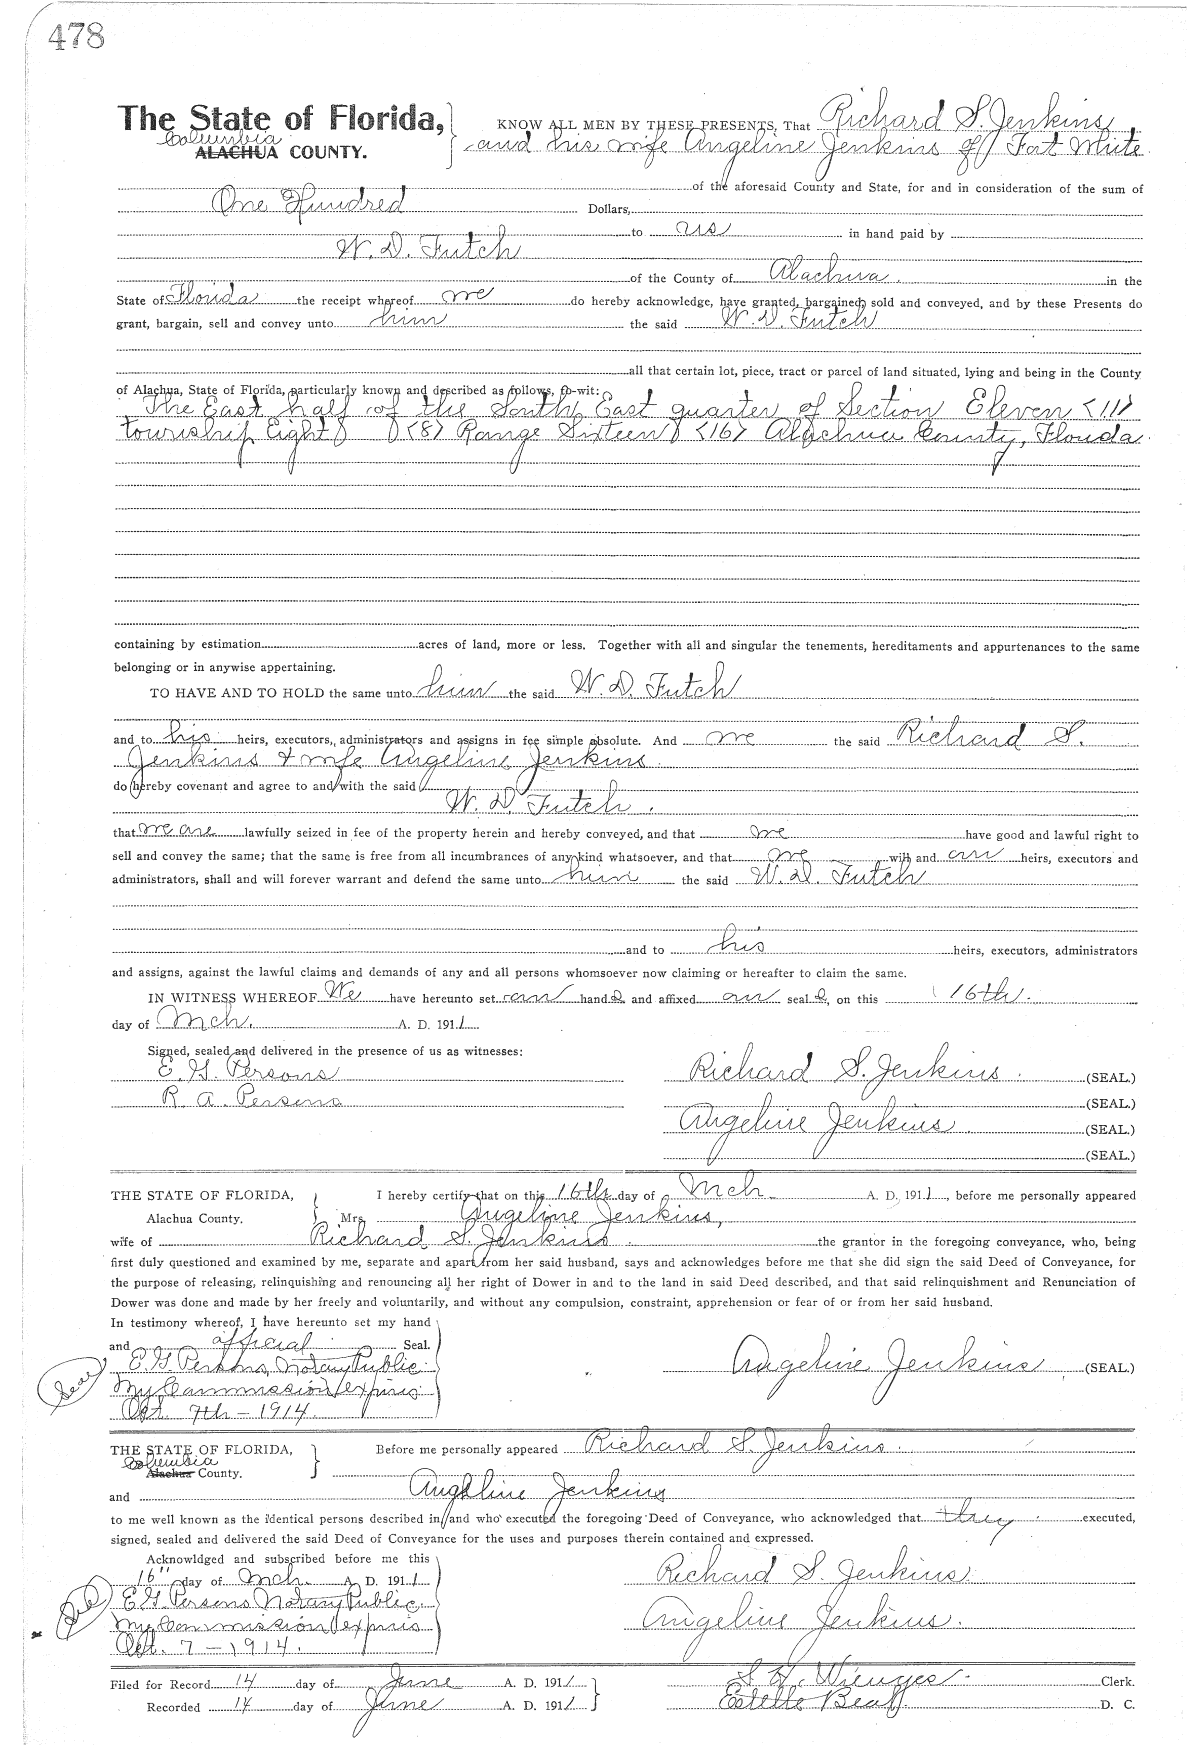 478
The State of Florida, KNOW ALL MEN BY THESE PRESENTS, That Richard S. Jenkins
Columbia
ALACHUA COUNTY. and his wife Angeline Jenkins of Fort White
of the aforesaid County and State, for and in consideration of the sum of
One Hundred Dollars,
to us in hand paid by
W. D. Futch
of the County of Alachua. in the
State of Florida the receipt whereof we do hereby acknowledge, have granted, bargained, sold and conveyed, and by these Presents do
grant, bargain, sell and convey unto him the said W. D. Futch
all that certain lot, piece, tract or parcel of land situated, lying and being in the County
of Alachua, State of Florida, particularly known and described as follows, to-wit:
The East half of the South East quarter of Section Eleven <11>
township Eight <8> Range Sixteen <16> Alachua County, Florida.
containing by estimation acres of land, more or less. Together with all and singular the tenements, hereditaments and appurtenances to the same
belonging or in anywise appertaining.
TO HAVE AND TO HOLD the same unto him the said W. D. Futch
and to his heirs, executors, administrators and assigns in fee simple absolute. And we the said Richard S.
Jenkins & wife Angeline Jenkins.
do hereby covenant and agree to and with the said
W. D. Futch.
that we are lawfully seized in fee of the property herein and hereby conveyed, and that we have good and lawful right to
sell and convey the same; that the same is free from all incumbrances of any kind whatsoever, and that we will and our heirs, executors and
administrators, shall and will forever warrant and defend the same unto him the said W. D. Futch
and to his heirs, executors, administrators
and assigns, against the lawful claims and demands of any and all persons whomsoever now claiming or hereafter to claim the same.
IN WITNESS WHEREOF We have hereunto set our hands and affixed our seals, on this 16th.
day of Mch. A. D. 1911.
Signed, sealed and delivered in the presence of us as witnesses:
E. G. Persons Richard S. Jenkins. (SEAL.)
R. A. Persons (SEAL.)
Angeline Jenkins. (SEAL.)
(SEAL.)
THE STATE OF FLORIDA, I hereby certify that on this 16th day of Mch A. D. 1911, before me personally appeared
Alachua County. Mrs. Angeline Jenkins,
wife of Richard S. Jenkins. the grantor in the foregoing conveyance, who, being
first duly questioned and examined by me, separate and apart from her said husband, says and acknowledges before me that she did sign the said Deed of Conveyance, for
the purpose of releasing, relinquishing and renouncing all her right of Dower in and to the land in said Deed described, and that said relinquishment and Renunciation of
Dower was done and made by her freely and voluntarily, and without any compulsion, constraint, apprehension or fear of or from her said husband.
In testimony whereof, I have hereunto set my hand
and official Seal.
E. G. Persons, Notary Public. Angeline Jenkins (SEAL.)
Seal My Commission expires
Oct. 7th - 1914.
THE STATE OF FLORIDA, Before me personally appeared Richard S. Jenkins.
Columbia
Alachua County.
and Angeline Jenkins
to me well known as the identical persons described in and who executed the foregoing Deed of Conveyance, who acknowledged that they executed,
signed, sealed and delivered the said Deed of Conveyance for the uses and purposes therein contained and expressed.
Acknowldged and subscribed before me this
16" day of Mch. A. D. 1911. Richard S. Jenkins.
Seal E. G. Persons Notary Public.
My Commission expires Angeline Jenkins.
Oct. 7 - 1914.
Filed for Record 14 day of June A. D. 1911 S. H. Wienges. Clerk.
Recorded 14 day of June A. D. 1911 Estelle D. C.